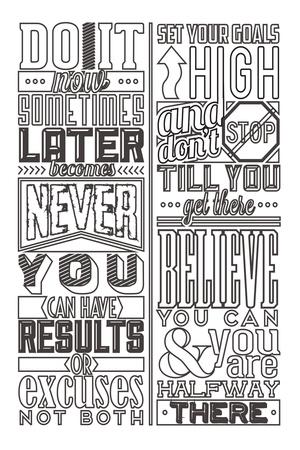 DO IT
now
SOMETIMES
LATER
becomes
NEVER
YOU
CAN HAVE
RESULTS
OR
excuses
NOT BOTH
SET YOUR GOALS
HIGH
and
don't STOP
TILL YOU
get there
BELIEVE
YOU CAN
& you
are
HALFWAY
THERE